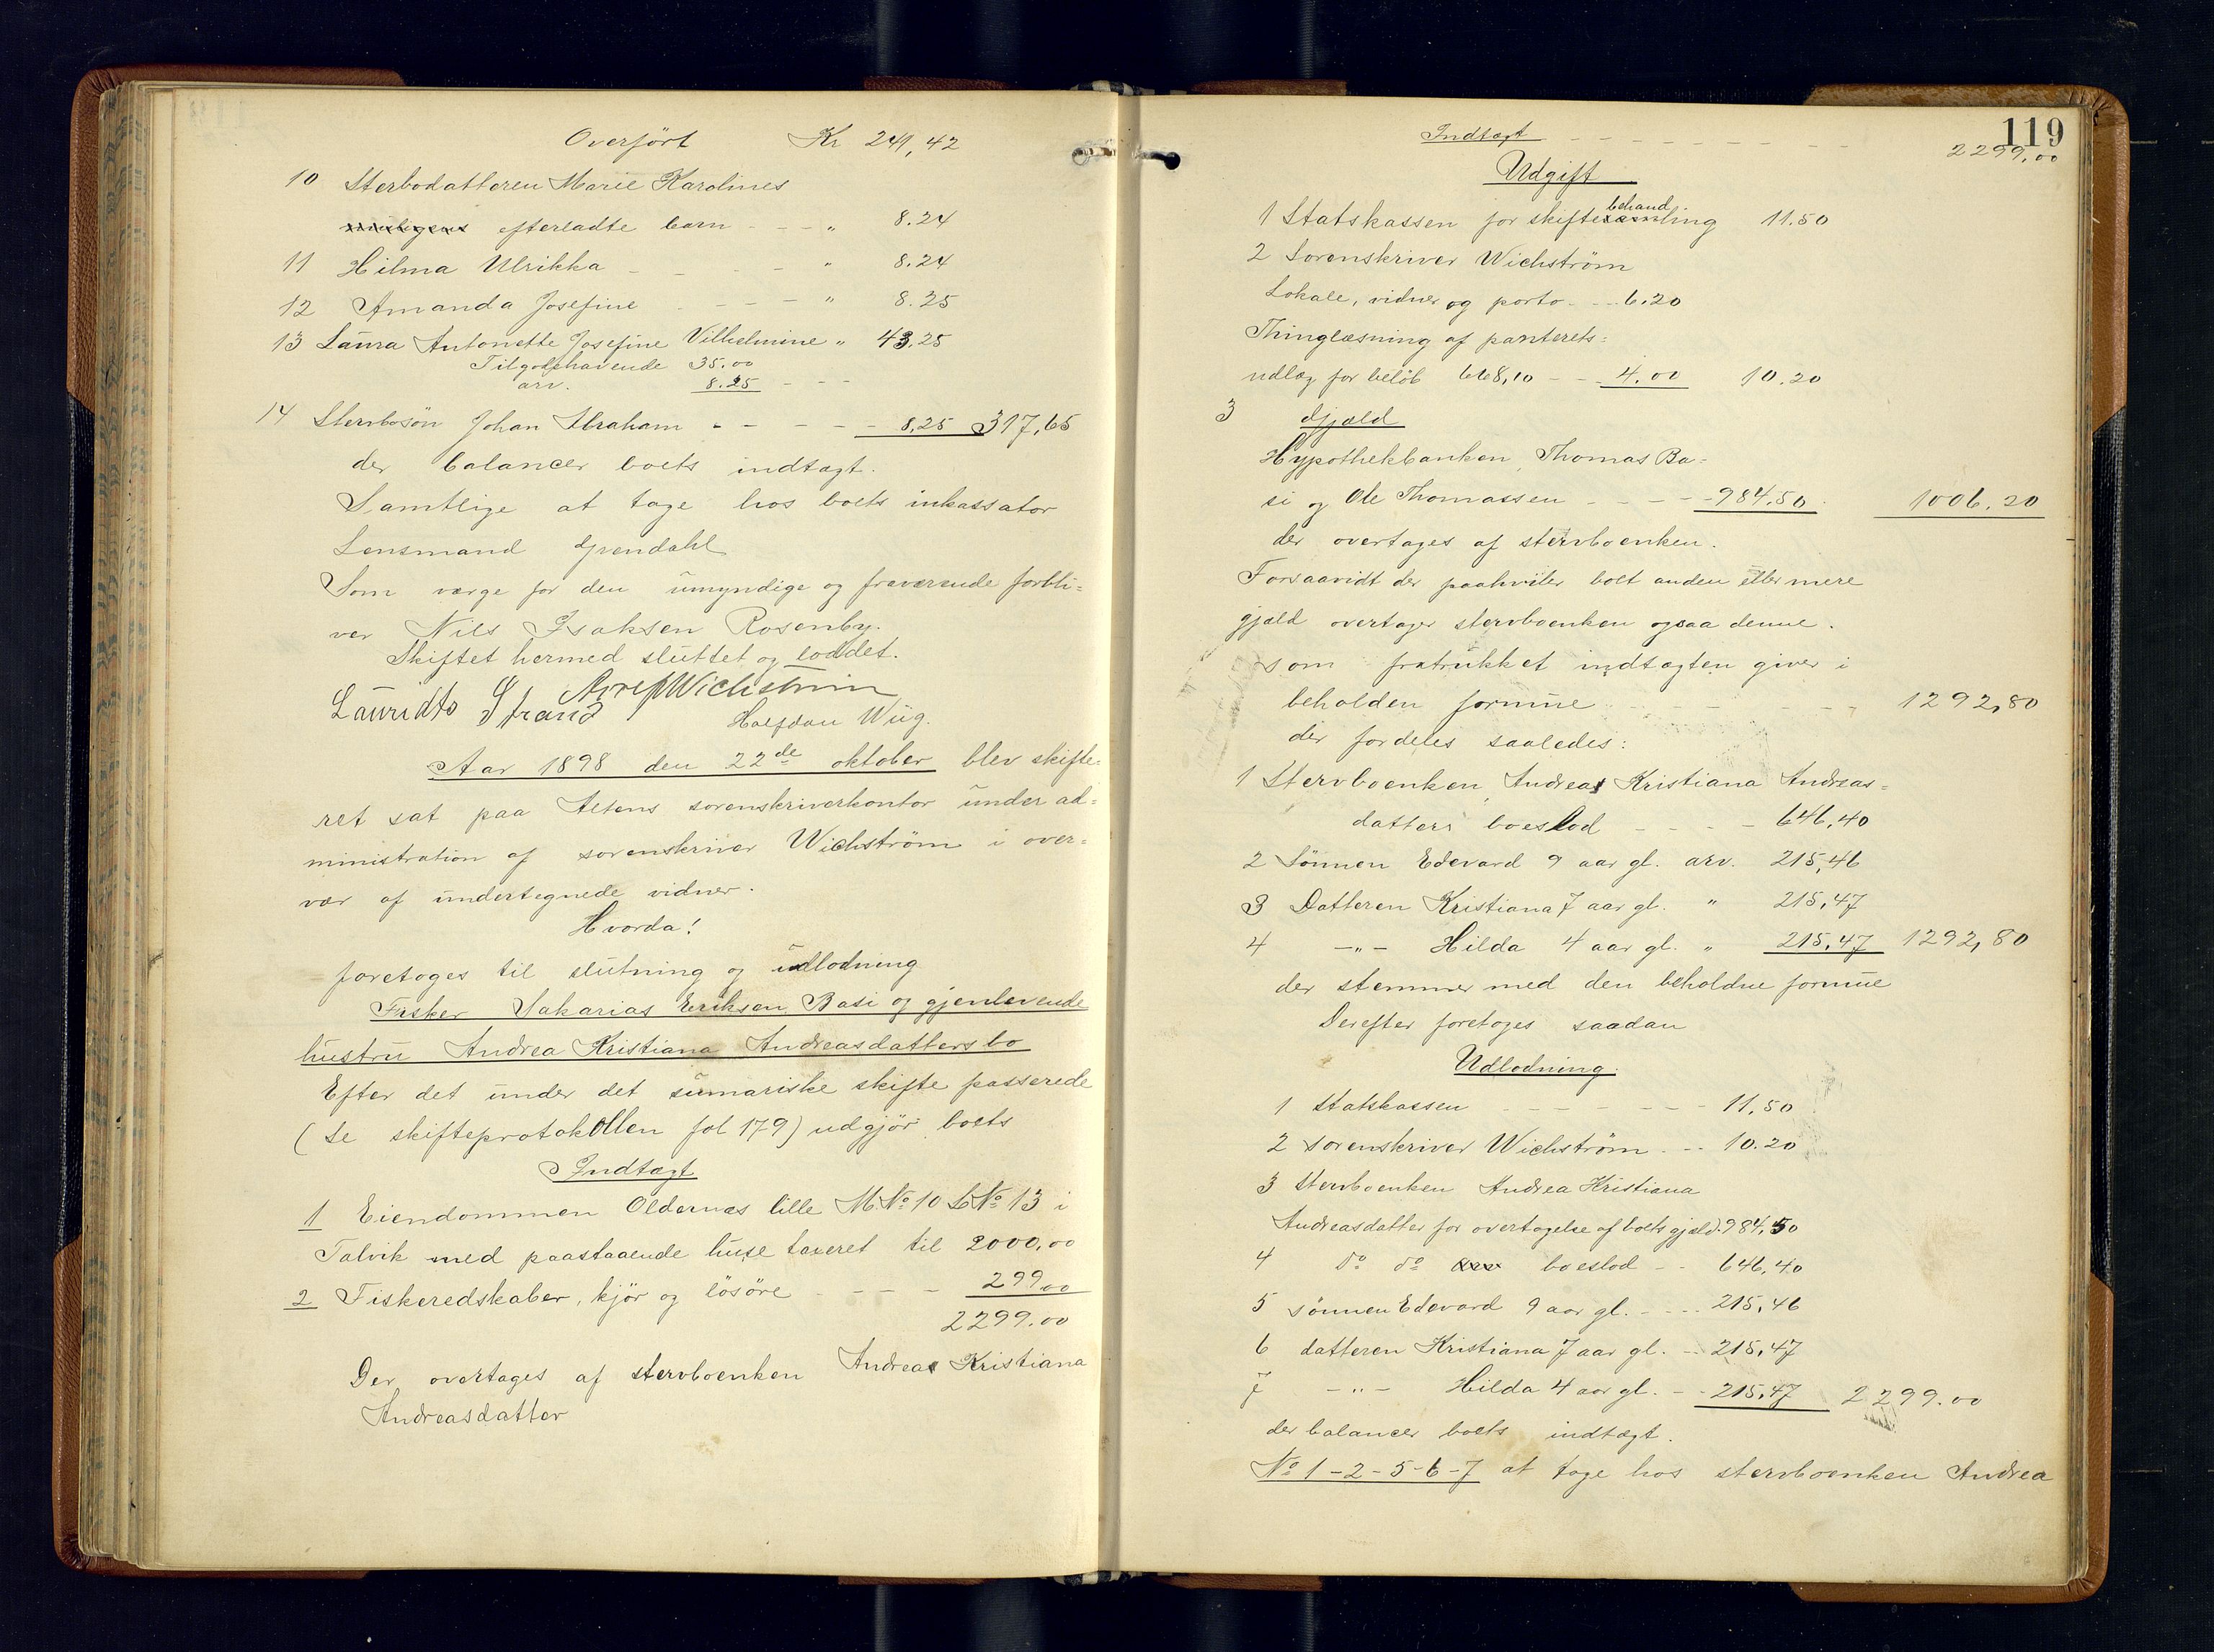 Overført Kr 241,42
10 Sterbodatteren Marie Karolines
efterladte barn - - - " 8.24
11 Hilma Ulrikka - - - - " 8.24
12 Amanda Josefine - - - - " 8.25
13 Laura Antonette Josefine Vilhelmine " 43,25
Tilgodehavende 35.00
arv. 8.25 - - -
14 Stervbosön Johan Abraham - - - - - 8,25 317,65
der balancer boets indtægt.
Samtlige at tage hos boets inkassator
Lensmand Grendahl
Som værge for den umyndige og fraværende forbli=
ver Nils Isaksen Rosenby.
Skiftet hermed sluttet og loddet.
Wichstrøm
Lauridts Strand
Halfdan Wiig.
Aar 1898 den 22de oktober blev skifte=
ret sat paa Altens sorenskriverkontor under ad=
ministration af sorenskriver Wichström i over=
vær af undertegnede vidner.
Hvorda!
foretoges til slutning og udlodning
Fisker Sakarias Eriksen Basi og gjenlevende
hustru Andrea Kristiana Andreasdatters bo
Efter det under det sumariske skifte passerede
(Se skifteprotokollen fol 179) udgjör boets
Indtægt
1 Eiendommen Oldernæs lille M.No 10 LNo 13 i
Talvik med paastaaende huse taxeret til 2000,00
2 Fiskeredskaber, kjör og lösöre - - - - 299.00
2299.00
Der overtages af stervboenken Andrea Kristiana
Andreasdatter
119
Indtægt - - - - - - - - - 2299,00
Udgift
behand
1 Statskassen for skiftesamling 11.50
2 Sorenskriver Wichström
Lokale, vidner og porto - - - 6.20
Thinglæsning af panterets=
udlæg for belöb 668,10 - - 4.00 10.20
3 Gjæld
Hypothekbanken, Thomas Ba=
si og Ole Thomassen - - - - 984,50 1006.20
der overtages af stervboenken.
Forsaavidt der paahviler boet anden eller mere
gjæld overtager stervboenken ogsaa denne.
som fratrukket indtægten giver i
beholden formue - - - - - - 1292,80
der fordeles saaledes:
1 Stervboenken, Andrea Kristiana Andreas=
datters boeslod - - - - 646,40
2 Sönnen Edevard 9 aar gl. arv. 215,46
3 Datteren Kristiana 7 aar gl. " 215,47
4 -"- Hilda 4 aar gl. " 215,47 1292,80
der stemmer med den beholdne formue
Derefter foretoges saadan
Udlodning
1 Statskassen - - - - - - 11,50
2 sorenskriver Wichström - - - 10.20
3 Stervboenken Andrea Kristiana
Andreasdatter for overtagelse af boets gjæld. 984,50
4 do do arv boeslod - - 646,40
5 sönnen Edevard 9 aar gl. - - - 215,46
6 datteren Kristiana 7 aar gl. - - 215,47
7 -"- Hilda 4 aar gl. - - 215,47 2299.00
der balancer boets indtægt.
No 1-2-5-6-7 at tage hos stervboenken Andrea